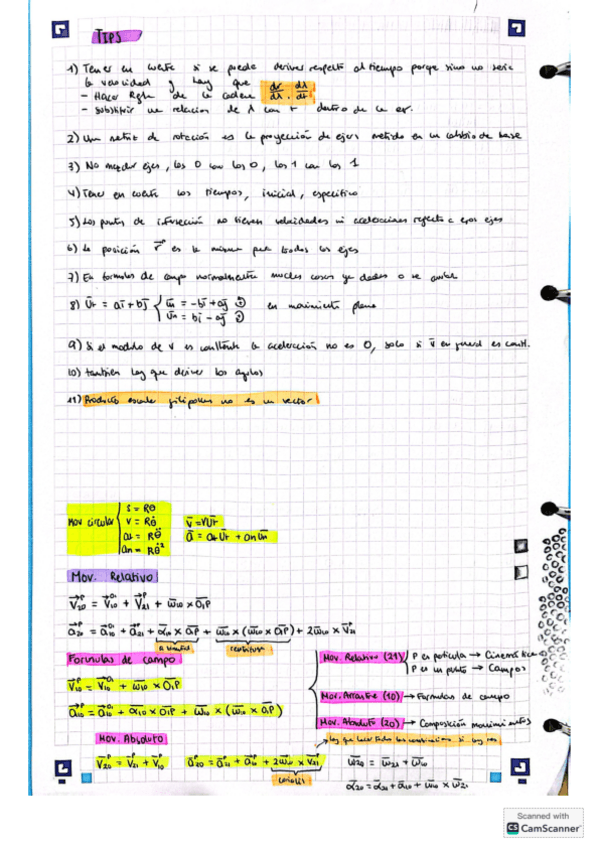 TIPS
1) Tener en cuenta si se puede derivar respecto al tiempo porque sino no seria
la velocidad y hay que
- Hacer Regla de la cadena dr/dλ · dλ/dt
- Substituir una relacion de λ con t dentro de la ec.
2) Una matriz de rotación es la proyección de ejes metido en un cambio de base
3) No mezclar ejes, los 0 con los 0, los 1 con los 1
4) Tener en cuenta los tiempos, inicial, especifico
5) Los puntos de intersección no tienen velocidades ni aceleraciones respecto a esos ejes
6) La posición r es la misma para todos los ejes
7) En formulas de campo normalmente muchas cosas ya dadas o se anulan
8) ūt = aī + bj̄ { ūn = -bī + aj̄ ūn = bī - aj̄ en movimiento plano
9) Si el modulo de v es constante la aceleración no es 0, solo si v̄ en general es const.
10) tambien hay que derivar los angulos
11) Producto escalar gilipollas no es un vector
Mov circular { s = Rθ
v = Rθ̇ v̄ = vūt
at = Rθ̈ ā = at ūt + an ūn
an = Rθ̇²
Mov. Relativo
V₂₀ᴾ = V₁₀ᴼ¹ + V₂₁ᴾ + ω̄₁₀ × O₁P
a₂₀ᴾ = a₁₀ᴼ¹ + a₂₁ᴾ + α₁₀ × O₁P + ω̄₁₀ × (ω̄₁₀ × O₁P) + 2ω̄₁₀ × V₂₁ᴾ
Formulas de campo
V₁₀ᴾ = V₁₀ᴼ¹ + ω̄₁₀ × O₁P
a₁₀ᴾ = a₁₀ᴼ¹ + α₁₀ × O₁P + ω̄₁₀ × (ω̄₁₀ × O₁P)
Mov. Relativo (21) P es particula → Cinemática
P es un punto → Campos
Mov. Arrastre (10) → Formulas de campo
Mov. Absoluto (20) → Composición movimientos
Mov. Absoluto
V₂₀ᴾ = V₂₁ᴾ + V₁₀ᴾ a₂₀ᴾ = a₂₁ᴾ + a₁₀ᴾ + 2ω̄₁₀ × V₂₁ᴾ ω̄₂₀ = ω̄₂₁ + ω̄₁₀
coriolis
α₂₀ = α₂₁ + α₁₀ + ω̄₁₀ × ω̄₂₁
Scanned with
CS CamScanner